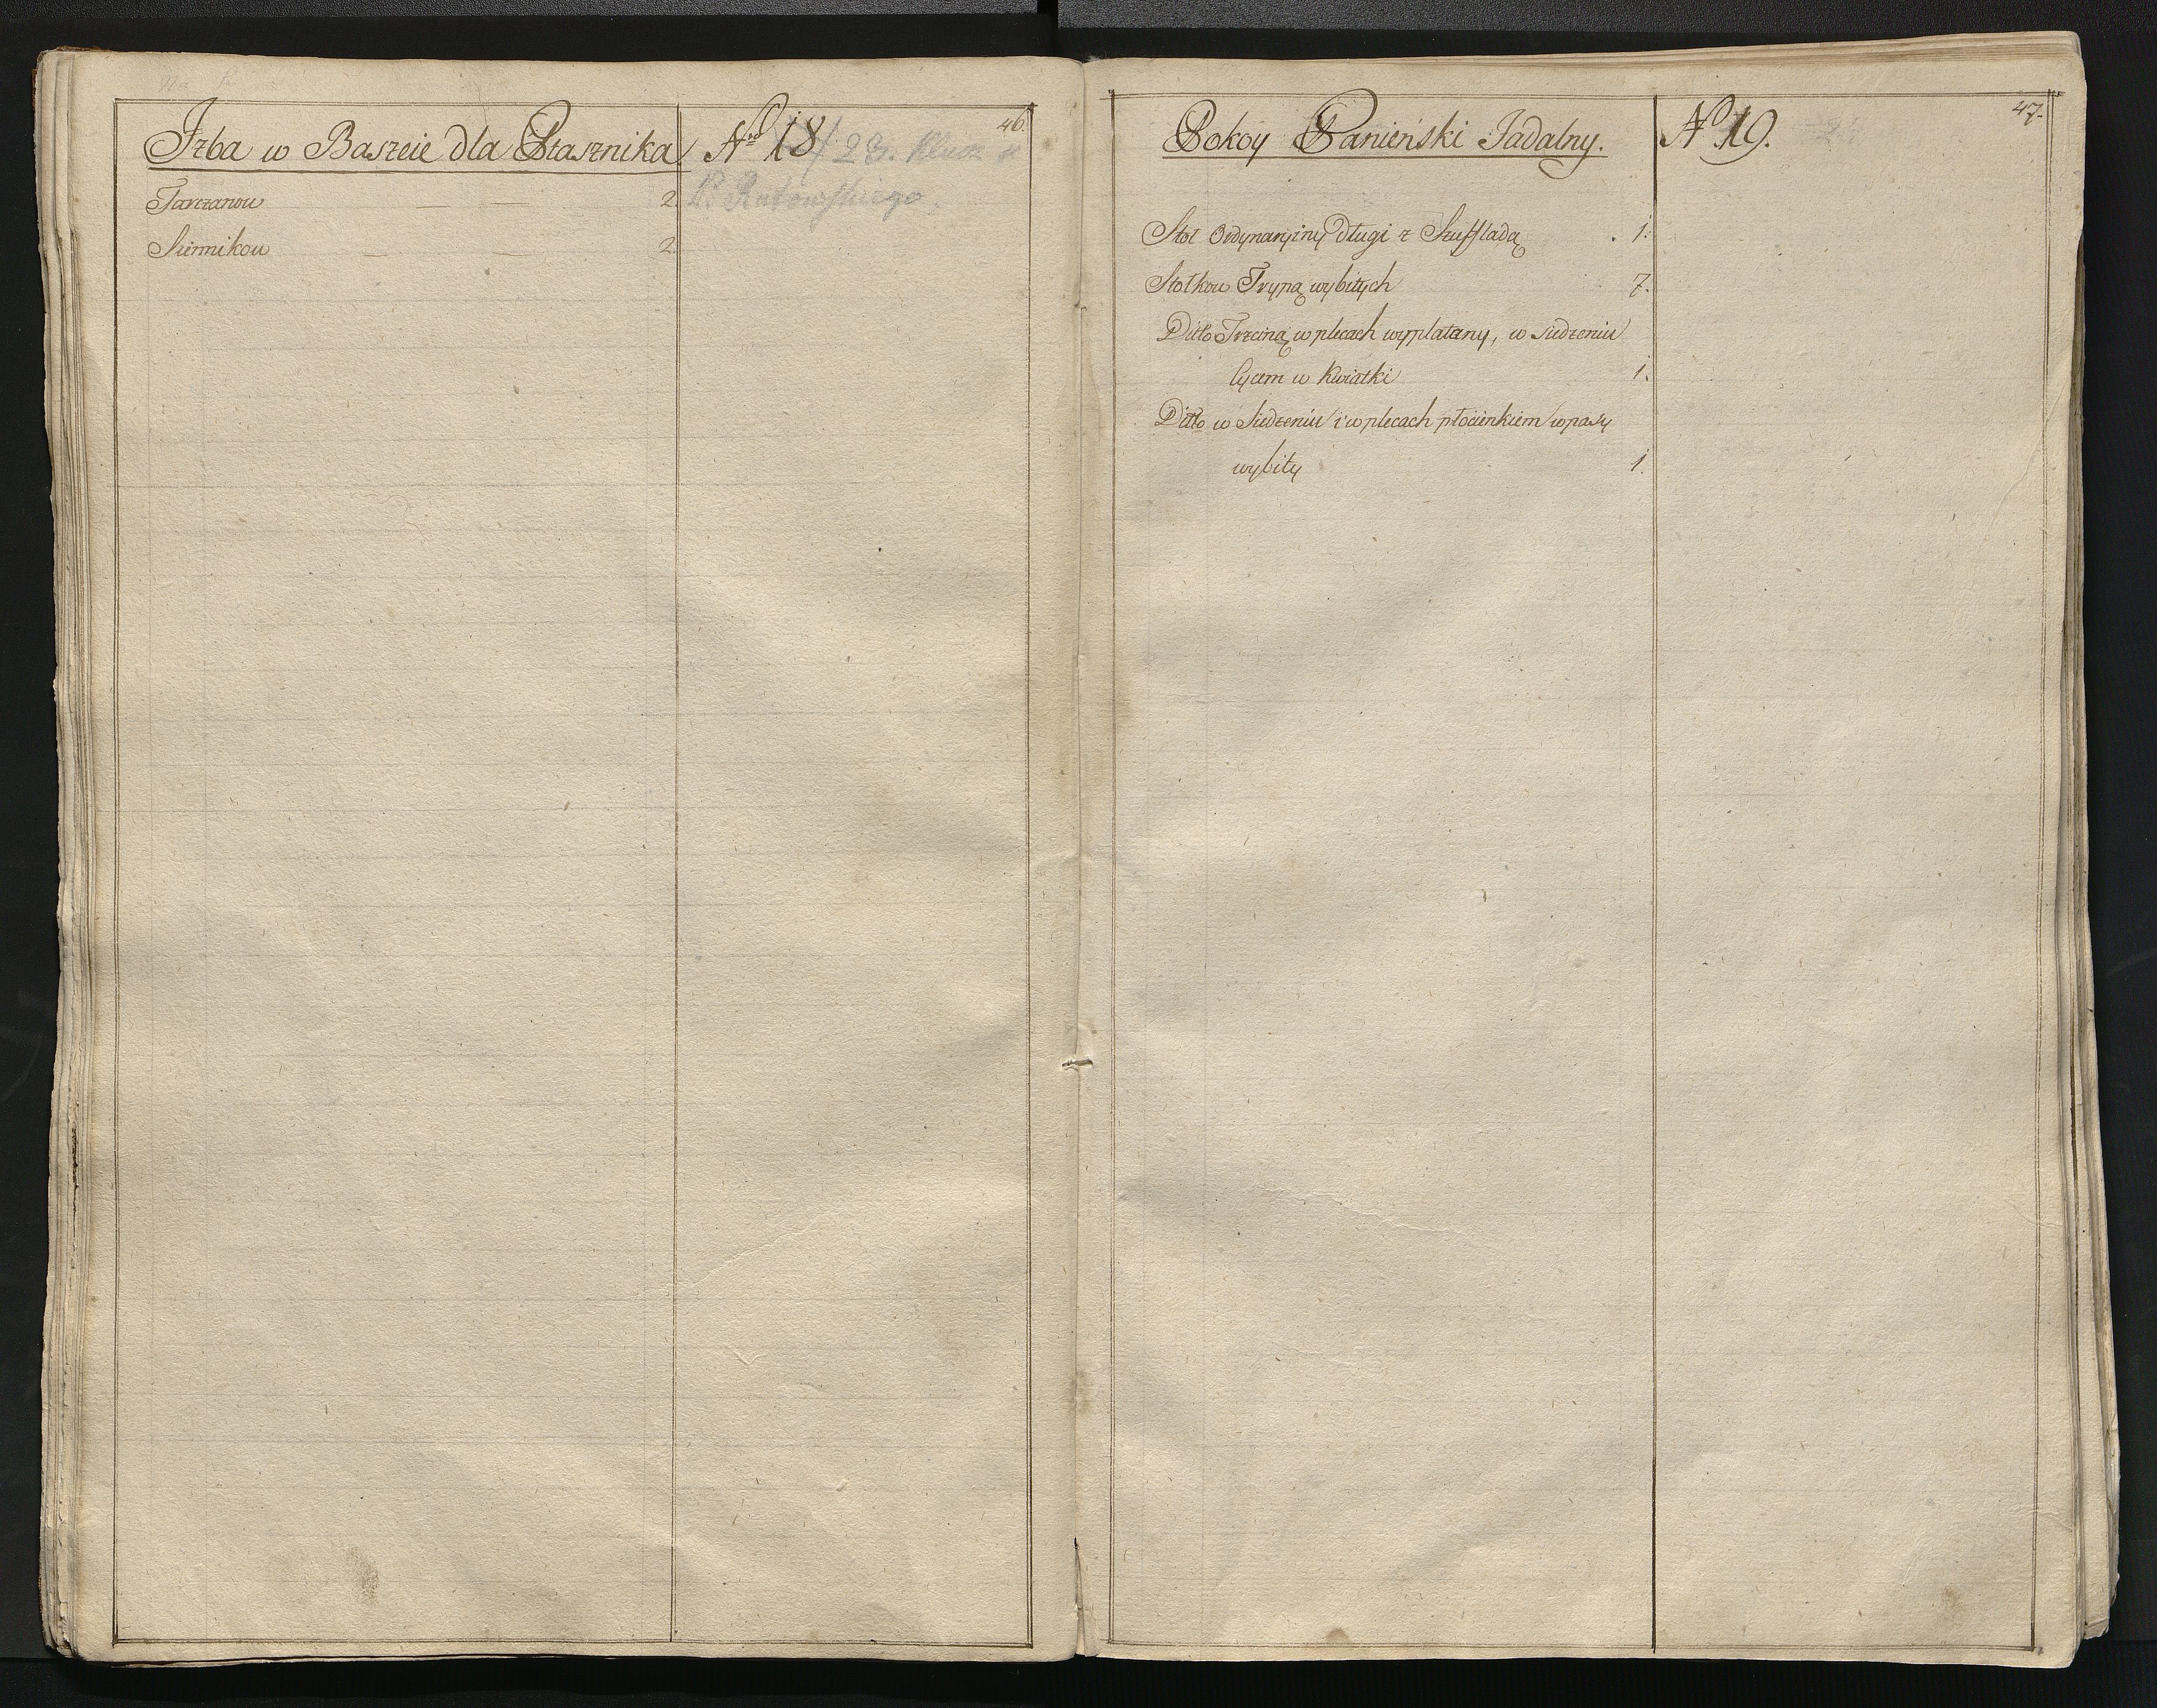 46.
Izba w Baszcie dla Ptasznika
Nro 18
23. Klucz u
P. Rutowskiego.
Tarczanow — — 2.
Siennikow — — 2.
47.
Pokoy Panieński Jadalny.
No 19.
Stoł Ordynaryiny długi z Szufflada̧ . 1.
Stołkow Trypą wybitych 7.
Ditto Trzciną w plecach wyplatany, w siedzeniu
lycem w Kwiatki 1.
Ditto w Siedzeniu i w plecach płocienkiem w pasy
wybity 1.